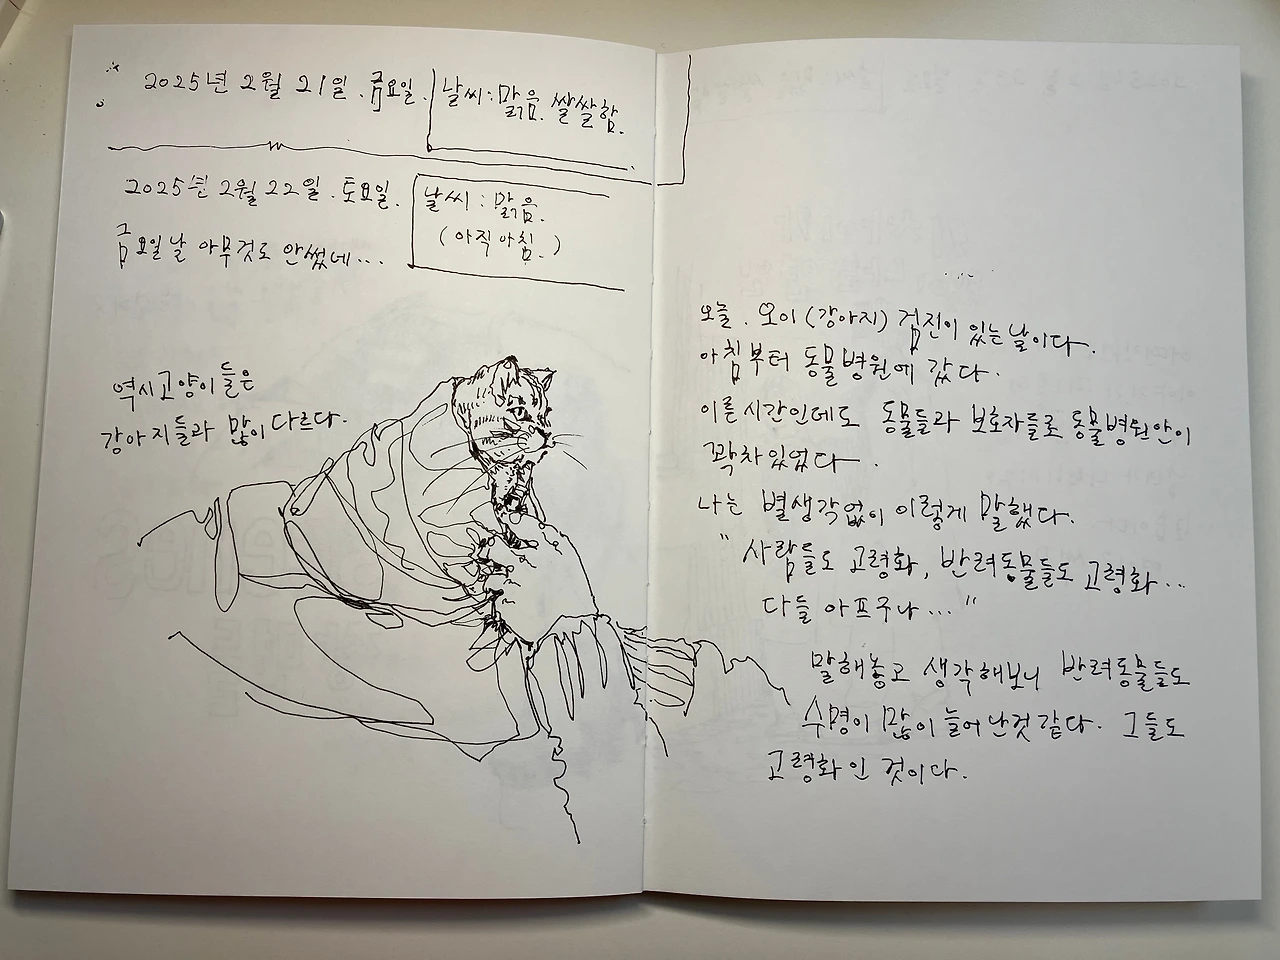 2025년 2월 21일. 금요일.
날씨: 맑음. 쌀쌀함.
2025년 2월 22일. 토요일.
날씨: 맑음.
(아직 아침.)
금요일날 아무것도 안썼네...
역시 고양이들은
강아지들과 많이 다르다.
오늘. 오이(강아지) 검진이 있는 날이다.
아침부터 동물병원에 갔다.
이른 시간인데도 동물들과 보호자들로 동물병원안이
꽉차 있었다.
나는 별생각없이 이렇게 말했다.
"사람들도 고령화, 반려동물들도 고령화...
다들 아프구나..."
말해놓고 생각해보니 반려동물들도
수명이 많이 늘어난것 같다. 그들도
고령화인 것이다.